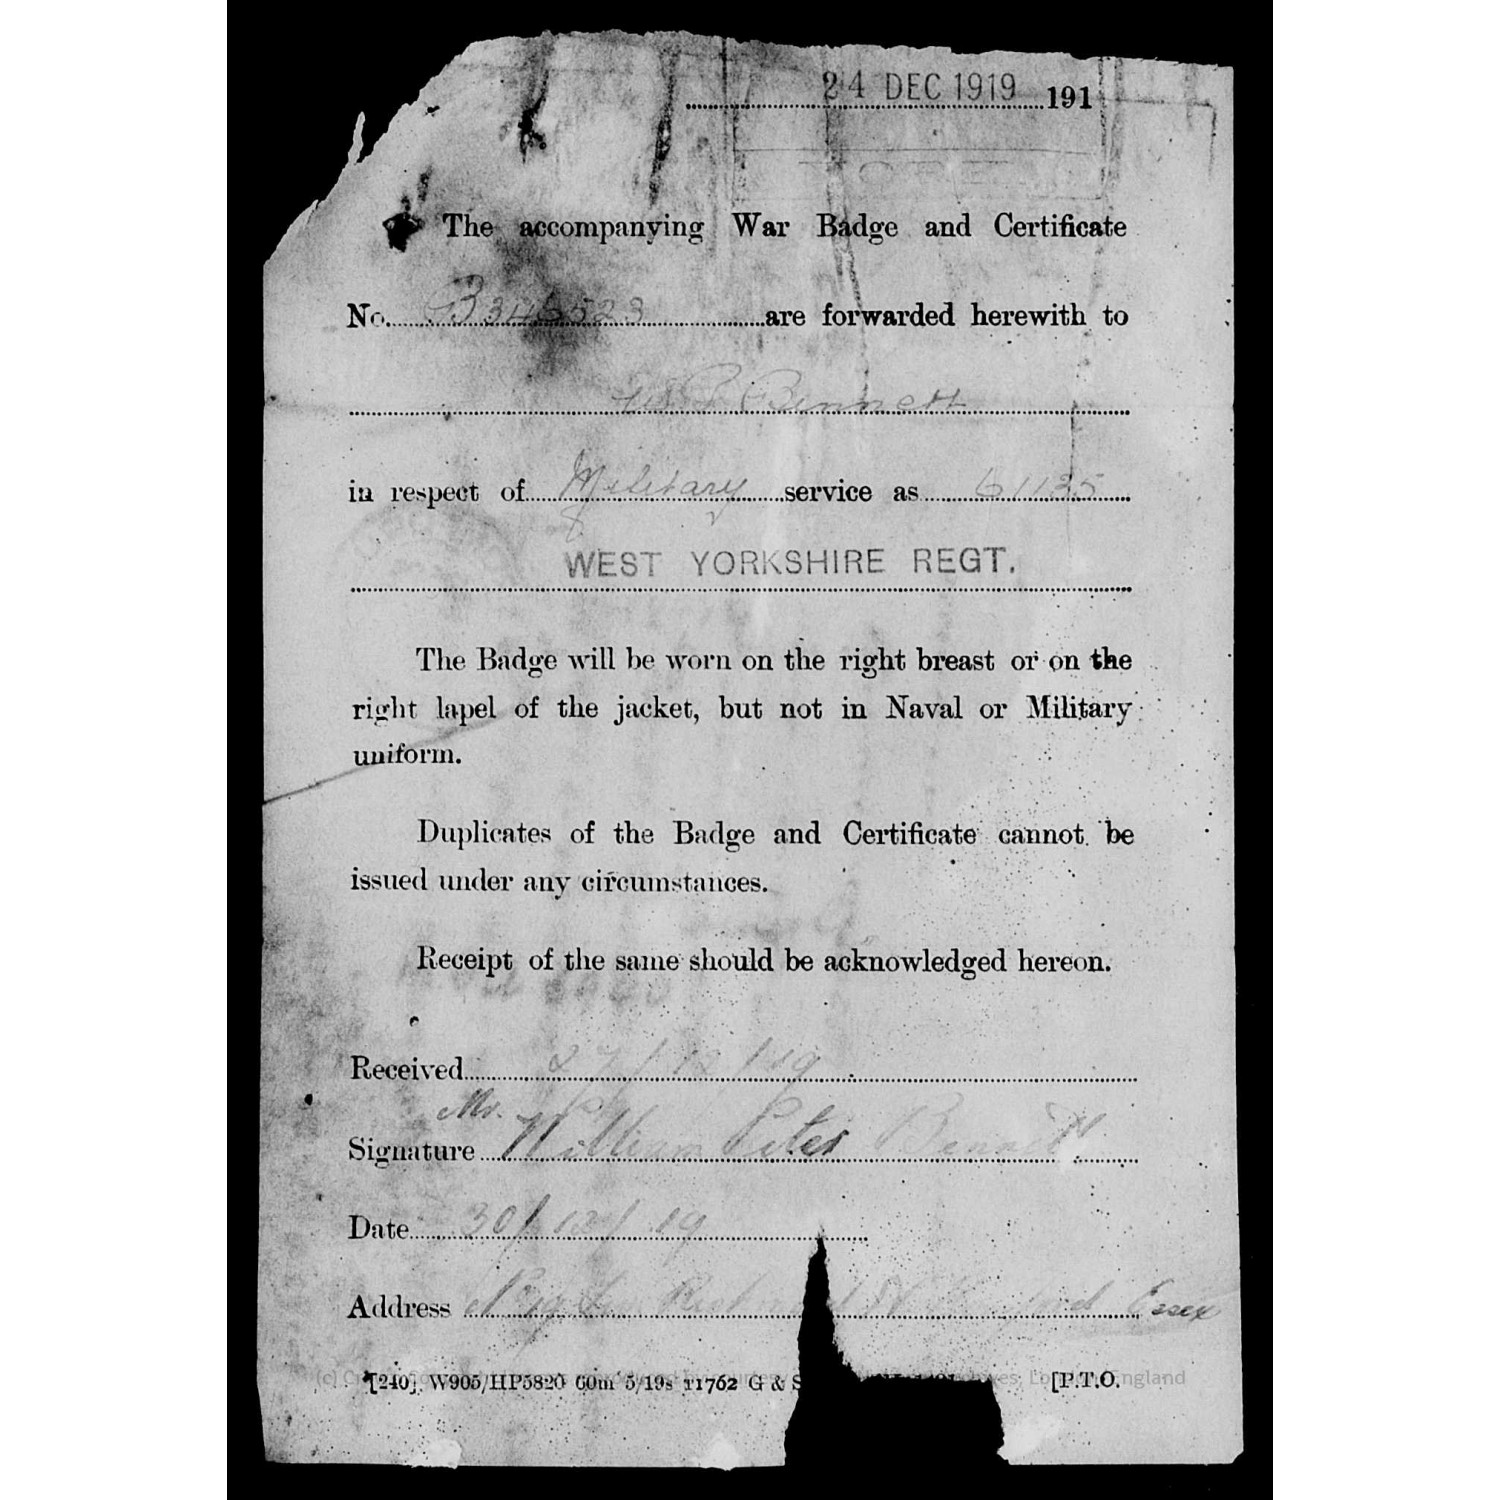 24 DEC 1919 191
The accompanying War Badge and Certificate
No. B346523 are forwarded herewith to
W P Bennett
in respect of Military service as 61135
WEST YORKSHIRE REGT.
The Badge will be worn on the right breast or on the
right lapel of the jacket, but not in Naval or Military
uniform.
Duplicates of the Badge and Certificate cannot be
issued under any circumstances.
Receipt of the same should be acknowledged hereon.
Received 27/12/19
Mr.
Signature William Peter Bennett
Date 30/12/19
Address Essex
[240] W905/HP5820 60m 5/19s 11762 G & S [P.T.O.